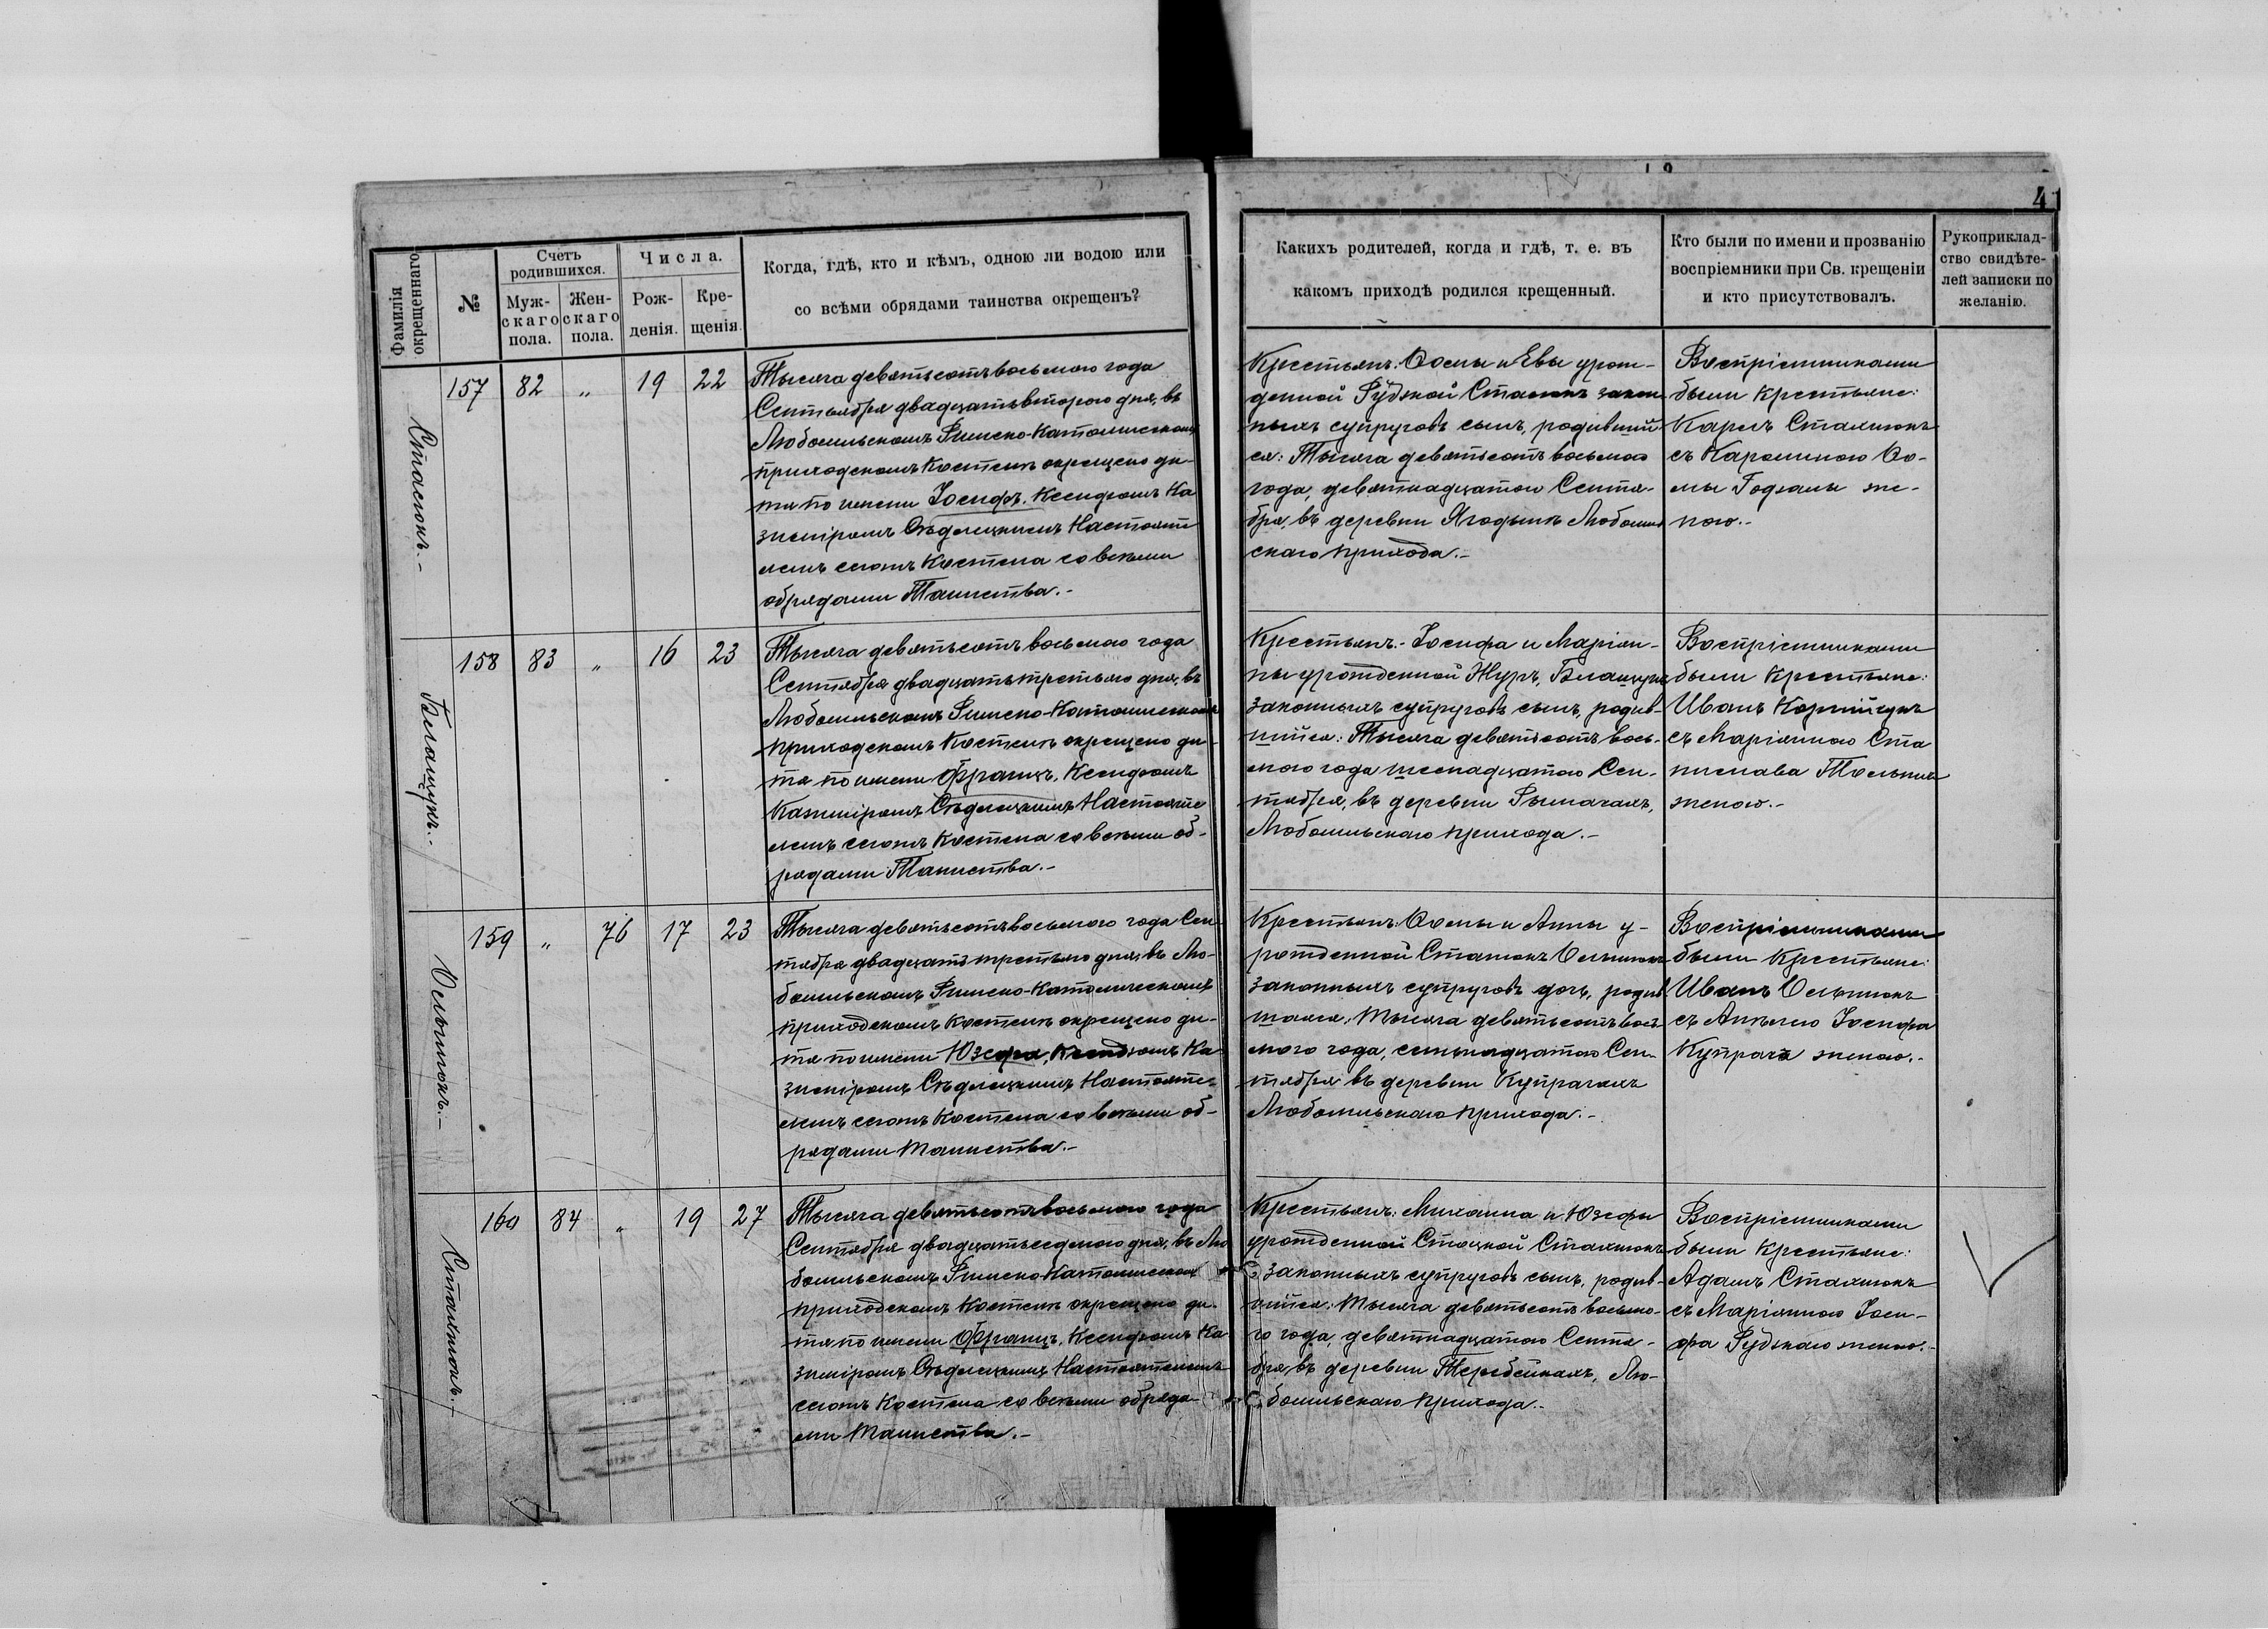 41
Фамилія
окрещеннаго
№
Счетъ
родившихся.
Муж-
скаго
пола.
Жен-
скаго
пола.
Числа.
Рож-
денія.
Кре-
щенія.
Когда, гдѣ, кто и кѣмъ, одною ли водою или
со всѣми обрядами таинства окрещенъ?
Какихъ родителей, когда и гдѣ, т. е. въ
какомъ приходѣ родился крещенный.
Кто были по имени и прозванію
воспріемники при Св. крещеніи
и кто присутствовалъ.
Рукоприклад-
ство свидѣте-
лей записки по
желанію.
157 82 „ 19 22
Тысяча девятьсотъ восьмого года
Сентября двадцать второго дня, въ
Любомльскомъ Римско-Католическомъ
приходскомъ Костелѣ окрещено ди-
тя по имени Іосифъ, Ксендзомъ Ка
зиміромъ Сѣдлецкимъ Настояте
лемъ сего Костела со всѣми
обрядами Таинства.-
Крестьянъ: Ѳомы и Евы урож-
денной Рудзкой закон
ныхъ супруговъ сынъ, родивший
ся: Тысяча девятьсотъ восьмого
года, девятнадцатого Сентя-
бря, въ деревни Ягодынѣ Любомль
скаго прихода.-
Воспріемниками
были Крестьяне:
Кароль Стахнюкъ
съ Каролиною Ѳо-
мы же-
ною.-
158 83 „ 16 23
Тысяча девятьсотъ восьмого года
Сентября двадцать третьяго дня, въ
Любомльскомъ Римско-Католическомъ
приходскомъ Костелѣ окрещено ди-
тя по имени Францъ, Ксендзомъ
Казиміромъ Сѣдлецкимъ Настояте
лемъ сего Костела со всѣми об-
рядами Таинства.-
Крестьянъ.- Іосифа и Маріан-
ны урожденной Журъ,
законныхъ супруговъ сынъ, родив-
шійся: Тысяча девятьсотъ вось-
мого года шеснадцатого Сен-
тября, въ деревни Рымачахъ,
Любомльскаго прихода.-
Воспріемниками
были Крестьяне:
Иванъ
съ Маріанною Ста
нислава
женою.-
159 „ 76 17 23
Тысяча девятьсотъ восьмого года Сен
тября двадцать третьяго дня, въ Лю-
бомльскомъ Римско-Католическомъ
приходскомъ Костелѣ окрещено ди-
тя по имени Юзефа, Ксендзомъ Ка
зиміромъ Сѣдлецкимъ Настояте-
лемъ сего Костела со всѣми об-
рядами Таинства.-
Крестьянъ: Ѳомы и Анны у-
рожденной
законныхъ супруговъ дочь, родив
шаяся: Тысяча девятьсотъ вось-
мого года, семнадцатого Сен-
тября въ деревни Купрачахъ
Любомльскаго прихода.-
Воспріемниками
были Крестьяне:
Иванъ
съ Іосифа
Купрача женою.-
160 84 „ 19 27
Стахнюкъ.-
Тысяча девятьсотъ восьмого года
Сентября двадцать седмого дня, въ Лю
бомльскомъ Римско-Католическомъ
приходскомъ Костелѣ окрещено ди-
тя по имени Францъ, Ксендзомъ Ка
зиміромъ Сѣдлецкимъ Настоятелемъ
сего Костела со всѣми обряда-
ми Таинства.-
Крестьянъ: Михаила и Юзефы
урожденной Стоцкой Стахнюкъ
законныхъ супруговъ сынъ, родив-
шійся: Тысяча девятьсотъ восьмо-
го года, девятнадцатого Сентя-
бря, въ деревни Теребейкахъ, Лю-
бомльскаго прихода.-
Воспріемниками
были Крестьяне:
Адамъ Стахнюкъ
съ Маріанною Іоси-
фа Рудзкаго женою.-